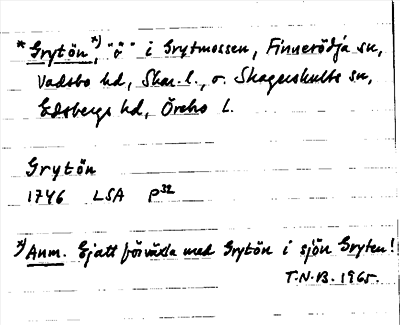 * Grytön*), "ö" i Grytmossen, Finnerödja sn,
Vadsbo hd, Skar. l., o. Skagershults sn,
Edsbergs hd, Örebro l.
Grytön
1746 LSA P32
*) Anm. Ej att förväxla med Grytön i sjön Gryten!
T.N.B. 1965.